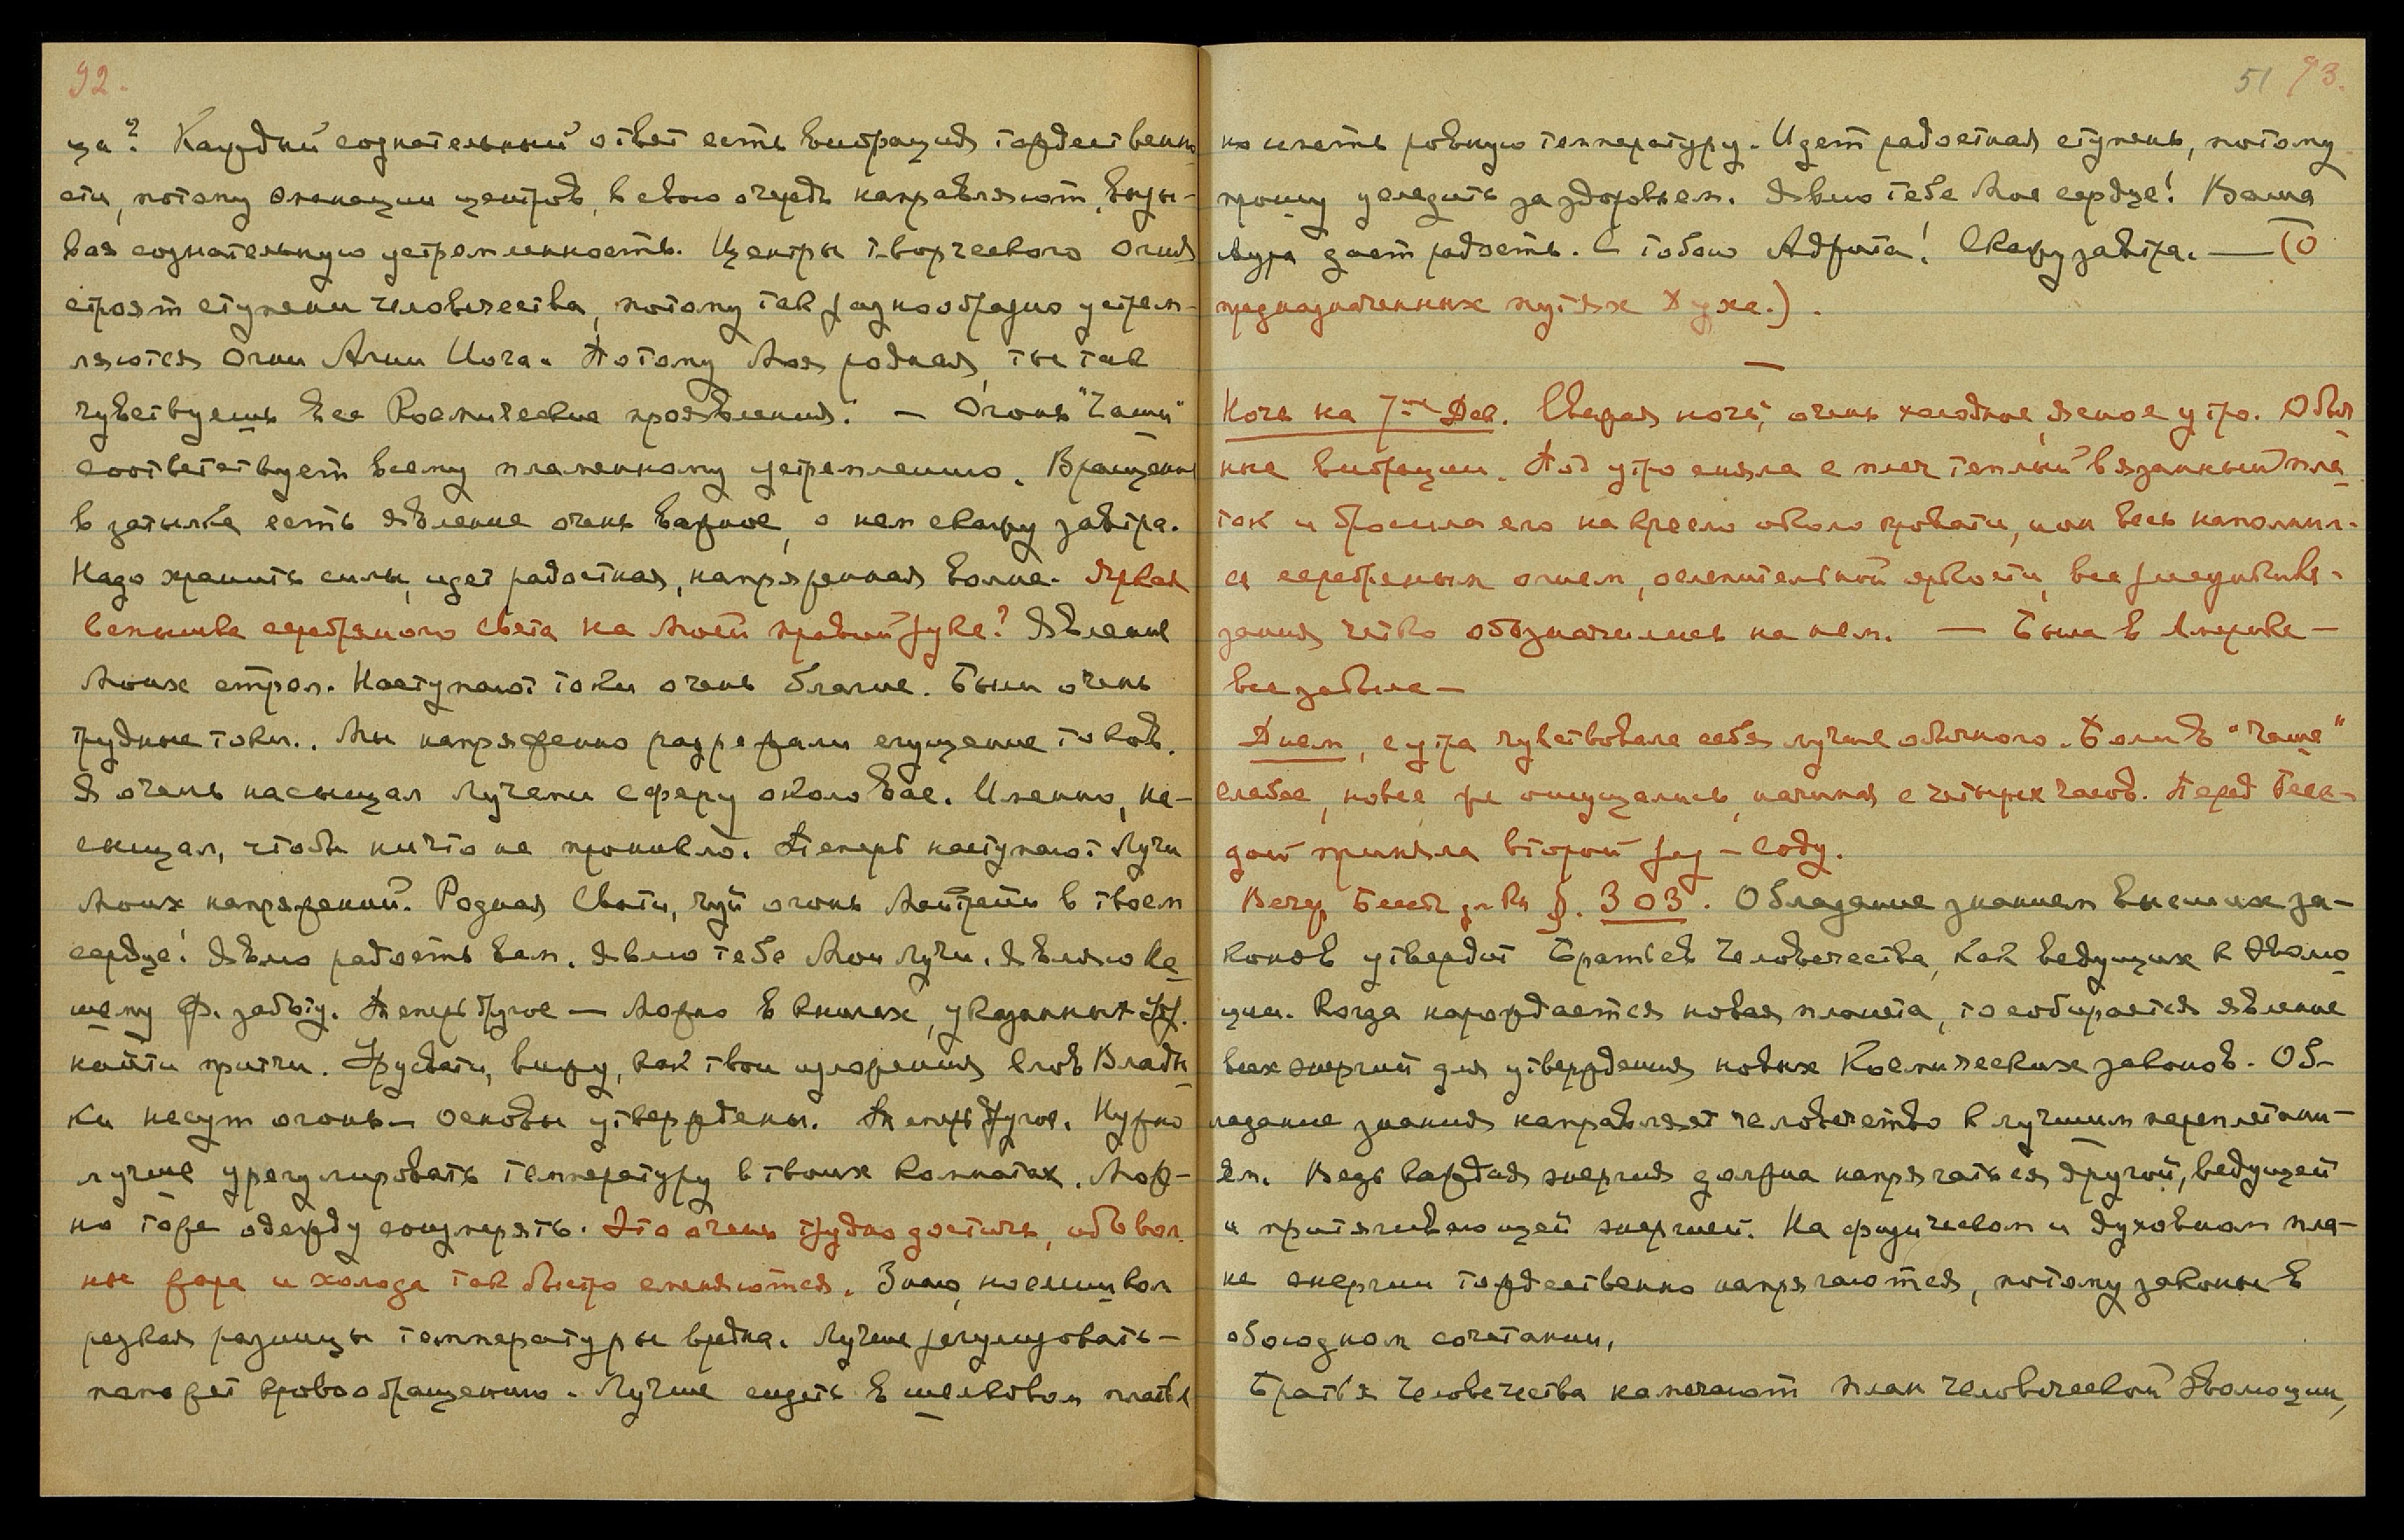 92.
ца? Каждый сознательный ответ есть вибрация тождественно
сти, потому эманации центров, в свою очередь направляют, вызы-
вая сознательную устремленность. Центры творческого огня
строят ступени человечества, потому так разнообразно устрем-
ляются Огни Агни Йога. Потому Моя родная, ты так
чувствуешь все Космические проявления. — Огонь "Чаши"
соответствует всему пламенному устремлению. Вращение
в затылке есть явление очень важное, о нем скажу завтра.
Надо хранить силы, идет радостная, напряженная волна. Яркая
вспышка серебряного света на моей правой руке? Явление
Моих стрел. Наступают токи очень благие. Были очень
трудные токи.. Мы напряженно разрежали сгущение токов.
Я очень насыщал Лучами сферу около вас. Именно, на-
сыщал, чтобы ничто не проникло. Теперь наступают Лучи
Моих напряжений. Родная Свати, чуй огонь Майтрейи в твоем
сердце! Явлю радость вам. Явлю тебе Мои Лучи. Являю ва
шему Ф. заботу. Теперь другое — Можно в книгах, указанных
найти притчи. Урусвати, вижу, как твои изложения слов Влады
ки несут огонь — основы утверждены. Теперь другое. Нужно
лучше урегулировать температуру в твоих комнатах. Мож-
но тоже одежду соизмерять. Это очень трудно достичь, ибо вол
ны жара и холода так быстро сменяются. Знаю, но слишком
резкая разницы температуры вредна. Лучше регулировать —
поможет кровообращению. Лучше сидеть в шелковом платье
51 93.
но иметь ровную температуру. Идет радостная ступень, потому
прошу уследить за здоровьем. Явлю тебе Мое сердце! Ваша
аура дает радость. С тобою Адрота! Скажу завтра. — (О
предназначенных путях Духа.).
—
Ночь на 7-ое Дек. Свежая ночь, очень холодное, ясное утро. Обыч
ные вибрации. Под утро сняла с плеч теплый вязанный пла
ток и бросила его на кресло около кровати, и он весь наполнил-
ся серебряным огнем, ослепительной яркости, все
четко обозначились на нем. — Была в Америке —
все забыла —
Днем, с утра чувствовала себя лучше обычного. Боли в "Чаше"
слабее, но все же ощущались, начиная с четырех часов. Перед Бесе-
дой приняла второй раз — соду.
Вечер. Беседа для Кн §. 303. Обладание знанием высших за-
конов утвердит Братьев Человечества, как ведущих к эволю
ции. Когда нарождается новая планета, то собирается явление
всех энергий для утверждения новых Космических законов. Об-
ладание знания направляет человечество к лучшим переплетани-
ям. Ведь каждая энергия должна напрягаться другой, ведущей
и притягивающей энергией. На физическом и духовном пла-
не энергии тождественно напрягаются, потому законы в
обоюдном сочетании.
Братья Человечества намечают план человеческой эволюции,